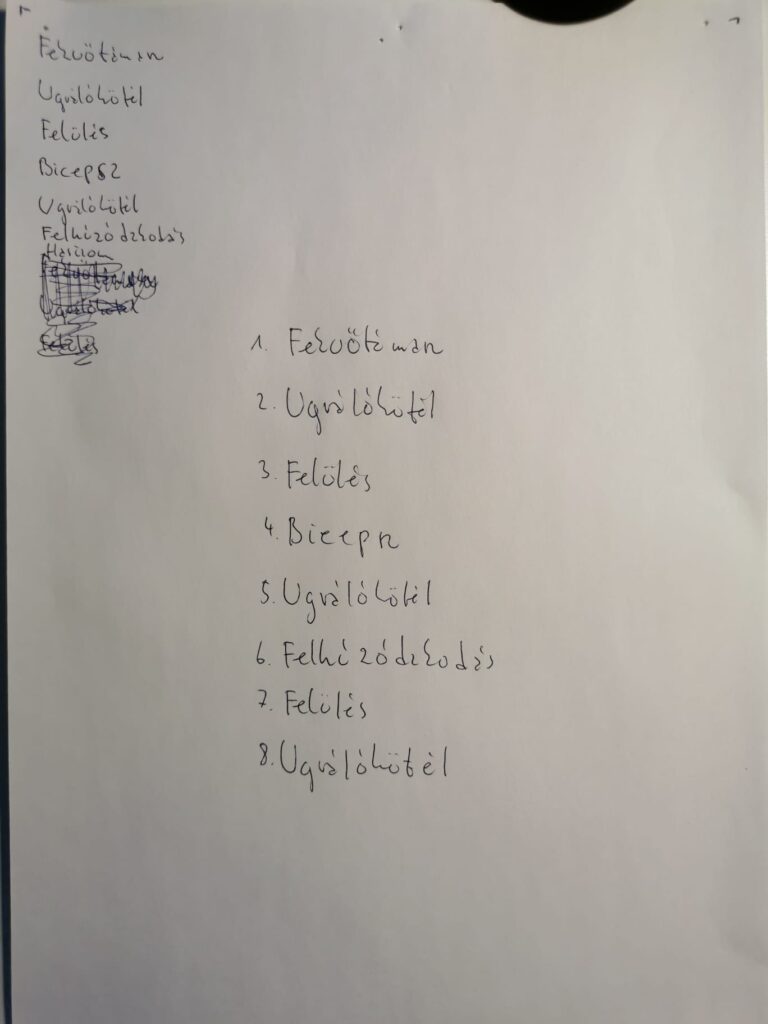 Fekvőtámasz
Ugrálókötél
Felülés
Bicepsz
Ugrálókötél
Felhízódzkodás
Hasizom
Ugrálókötél
Felülés
1. Fekvőtámasz
2. Ugrálókötél
3. Felülés
4. Bicepsz
5. Ugrálókötél
6. Felhízódzkodás
7. Felülés
8. Ugrálókötél